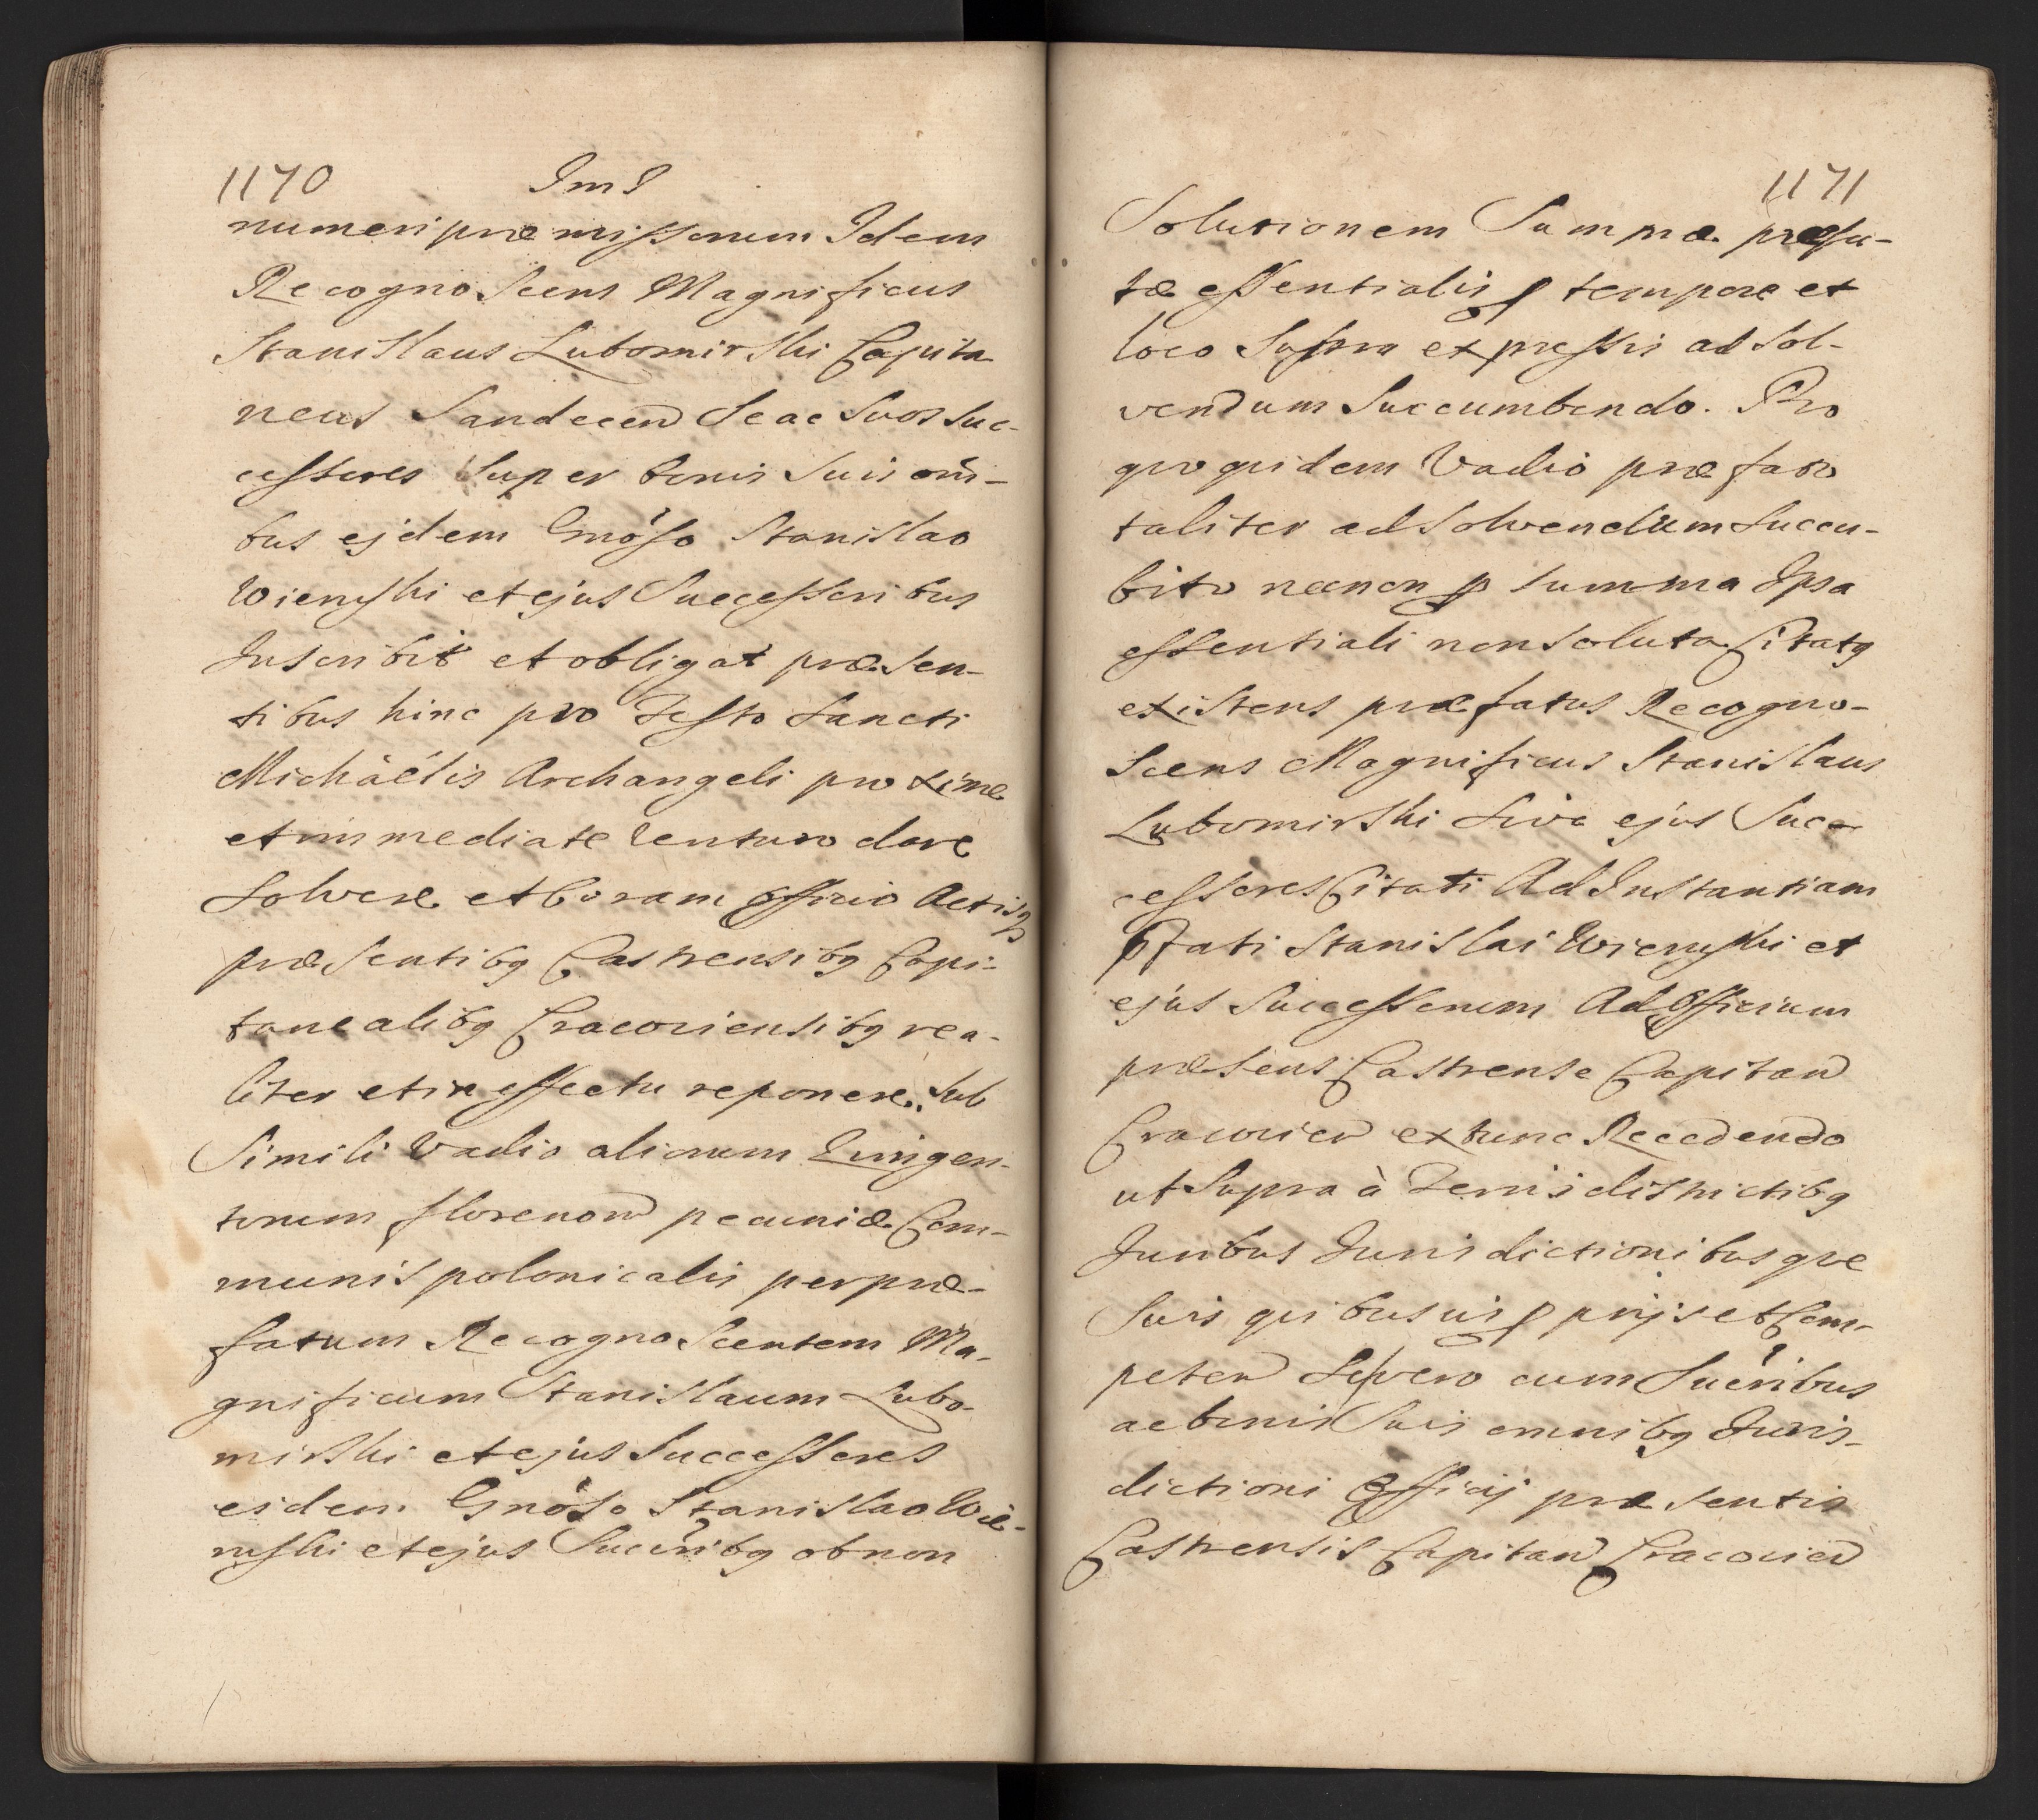 1170
numeri præmissorum Idem
Recognoscens Magnificus
Stanislaus Lubomirski Capita
neus Sandecen Se ac Suos Suc-
cessores Super bonis Suis omi-
bus ejdem Gnoso Stanislao
et ejus Successoribus
Inscribit et obligat præsen-
tibus hinc pro Festo Sancti
Michäélis Archangeli proxime
et immediate Venturo dare
Solvere et Coram Officio Actisq
præsentibq Castrensibq Capi-
tanealibq Cracoviensibq rea-
liter et in effectu reponere. Sub
Simili Vadio aliorum Quingen-
torum florenorum pecuniæ Com-
munis polonicalis per præ-
fatum Recognoscentem Ma-
gnificum Stanislaum Lubo-
mirski et ejus Successores
eidem Gnoso Stanislao Wie-
et ejus Succribq ob non
1171
Solutionem Summæ præfa-
tæ essentialis p tempore et
loco Supra expressis ad Sol-
vendum Succumbendo. Pro
quo quidem Vadio præfato
taliter ad Solvendum Succu-
bito necnon p Summa Ipsa
essentiali non Soluta Citatq
existens præfatus Recogno-
Scens Magnificus Stanislaus
Lubomirski Sive ejus Succ
essores Citati Ad Instantiam
pfati Stanislai et
ejus Successorum Ad Officium
præsens Castrense Capitan
Cracovien extunc Recedendo
ut Supra à Terris districtibq
Juribus Jurisdictionibusque
Suis quibusvis pprijs et Com-
peten Se vero cum Succribus
ac bonis Suis omnibq Juris-
dictioni Officij præsentis
Castrensis Capitan Cracovien